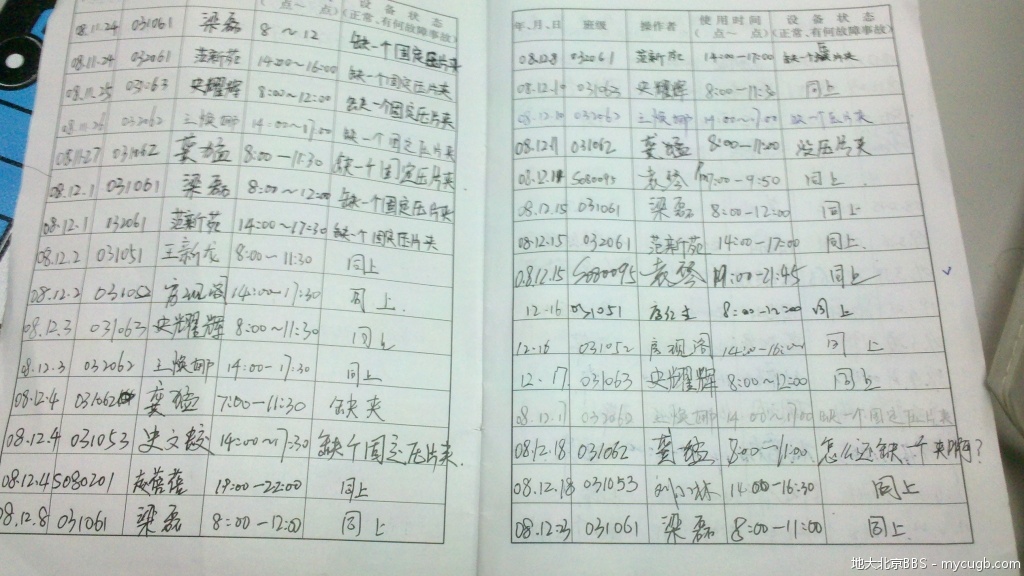 （点～点） 设备状态（正常、有何故障事故）
08.11.24 031061 梁磊 8～12 缺一个固定压片夹
08.11.24 032061 范新苑 14:00～16:00 缺一个固定压片夹
08.11.25 031063 史耀辉 8:00～12:00 缺一个固定压片夹
08.11.26 032062 14:00～17:00 缺一个固定压片夹
08.11.27 031062 龚猛 8:00—11:30 缺一个固定压片夹
08.12.1 031061 梁磊 8:00～12:00 缺一个固定压片夹
08.12.1 032061 范新苑 14:00～17:30 缺一个固定压片夹
08.12.2 031051 王新龙 8:00～11:30 同上
08.12.2 031052 房现阁 14:00～17:30 同上.
08.12.3 031063 史耀辉 8:00～11:30 同上
08.12.3 032062 14:00-17:30 同上
08.12.4 031062 龚猛 7:00—11:30 缺夹
08.12.4 031053 史文 14:00～17:30 缺个固定压片夹.
08.12.4 S080201 19:00-22:00 同上
08.12.8 031061 梁磊 8:00—12:00 同上
年、月、日 班级 操作者 使用时间（点～点） 设备状态（正常、有何故障事故）
08.12.8 032061 范新苑 14:00—17:00 缺一个压片夹
08.12.10 031063 史耀辉 8:00—11:30 同上
08.12.10 032062 14:00～17:00 缺一个压片夹
08.12.11 031062 龚猛 8:00—11:00 没压片夹
08.12.14 S080095 袁琴 7:00-9:50 同上.
08.12.15 031061 梁磊 8:00-12:00 同上
08.12.15 032061 范新苑 14:00-17:00 同上.
08.12.15 S080095 袁琴 19:00-21:45 同上
12.16 031051 8:00—12:00 同上
12.16 031052 房现阁 14:00-16:00 同上
12.17 031063 史耀辉 8:00～12:00 同上
08.12.17 032062 14:00～17:00 缺一个固定压片夹
08.12.18 031062 龚猛 8:00—11:00 怎么还缺一个夹啊？
08.12.18 031053 刘小林 14:00-16:30 同上
08.12.23 031061 梁磊 8:00-11:00 同上
地大北京BBS - mycugb.com